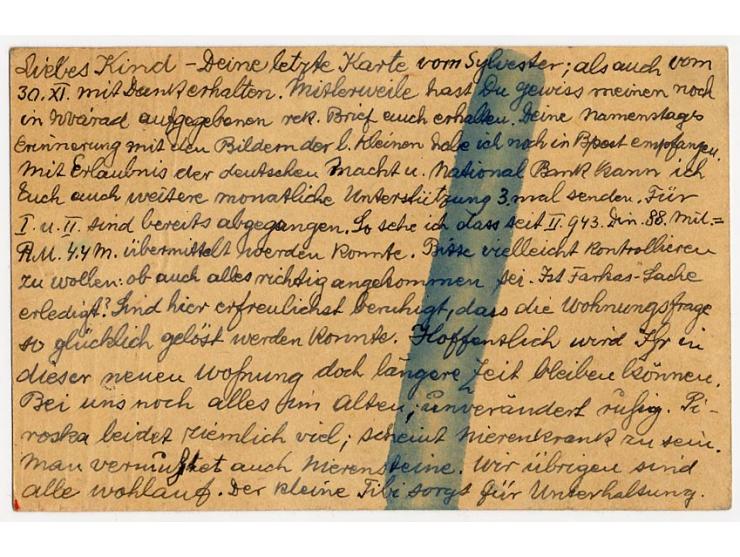 Liebes Kind - Deine letzte Karte vom Sylvester; als auch vom
30. XI. mit Dank erhalten. Mitlerweile hast Du gewiss meinen noch
in Nvárad aufgegebenen rek. Brief euch erhalten. Deine Namenstags
Erinnerung mit den Bildern der l. Kleinen habe ich noch in Bpest empfangen.
Mit Erlaubnis der deutschen Macht u. National Bank kann ich
Euch auch weitere monatliche Unterstützung 3 mal senden. Für
I. u. II. sind bereits abgegangen. So sehe ich dass seit II. 943. Din. 88. Mil.=
R.M. 4.4 M. übermittelt werden konnte. Bitte vielleicht kontrollieren
zu wollen: ob auch alles richtig angekommen sei. Ist Farkas-Sache
erledigt? Sind hier erfreulichst beruhigt, dass die Wohnungsfrage
so glücklich gelöst werden konnte. Hoffentlich wird Ihr in
dieser neuen Wohnung doch längere Zeit bleiben können.
Bei uns noch alles im alten, unverändert ruhig. Pi-
roska leidet ziemlich viel; scheint nierenkrank zu sein.
Man vermuthet auch Nierensteine. Wir übrigen sind
alle wohlauf. Der kleine Tibi sorgt für Unterhaltung.